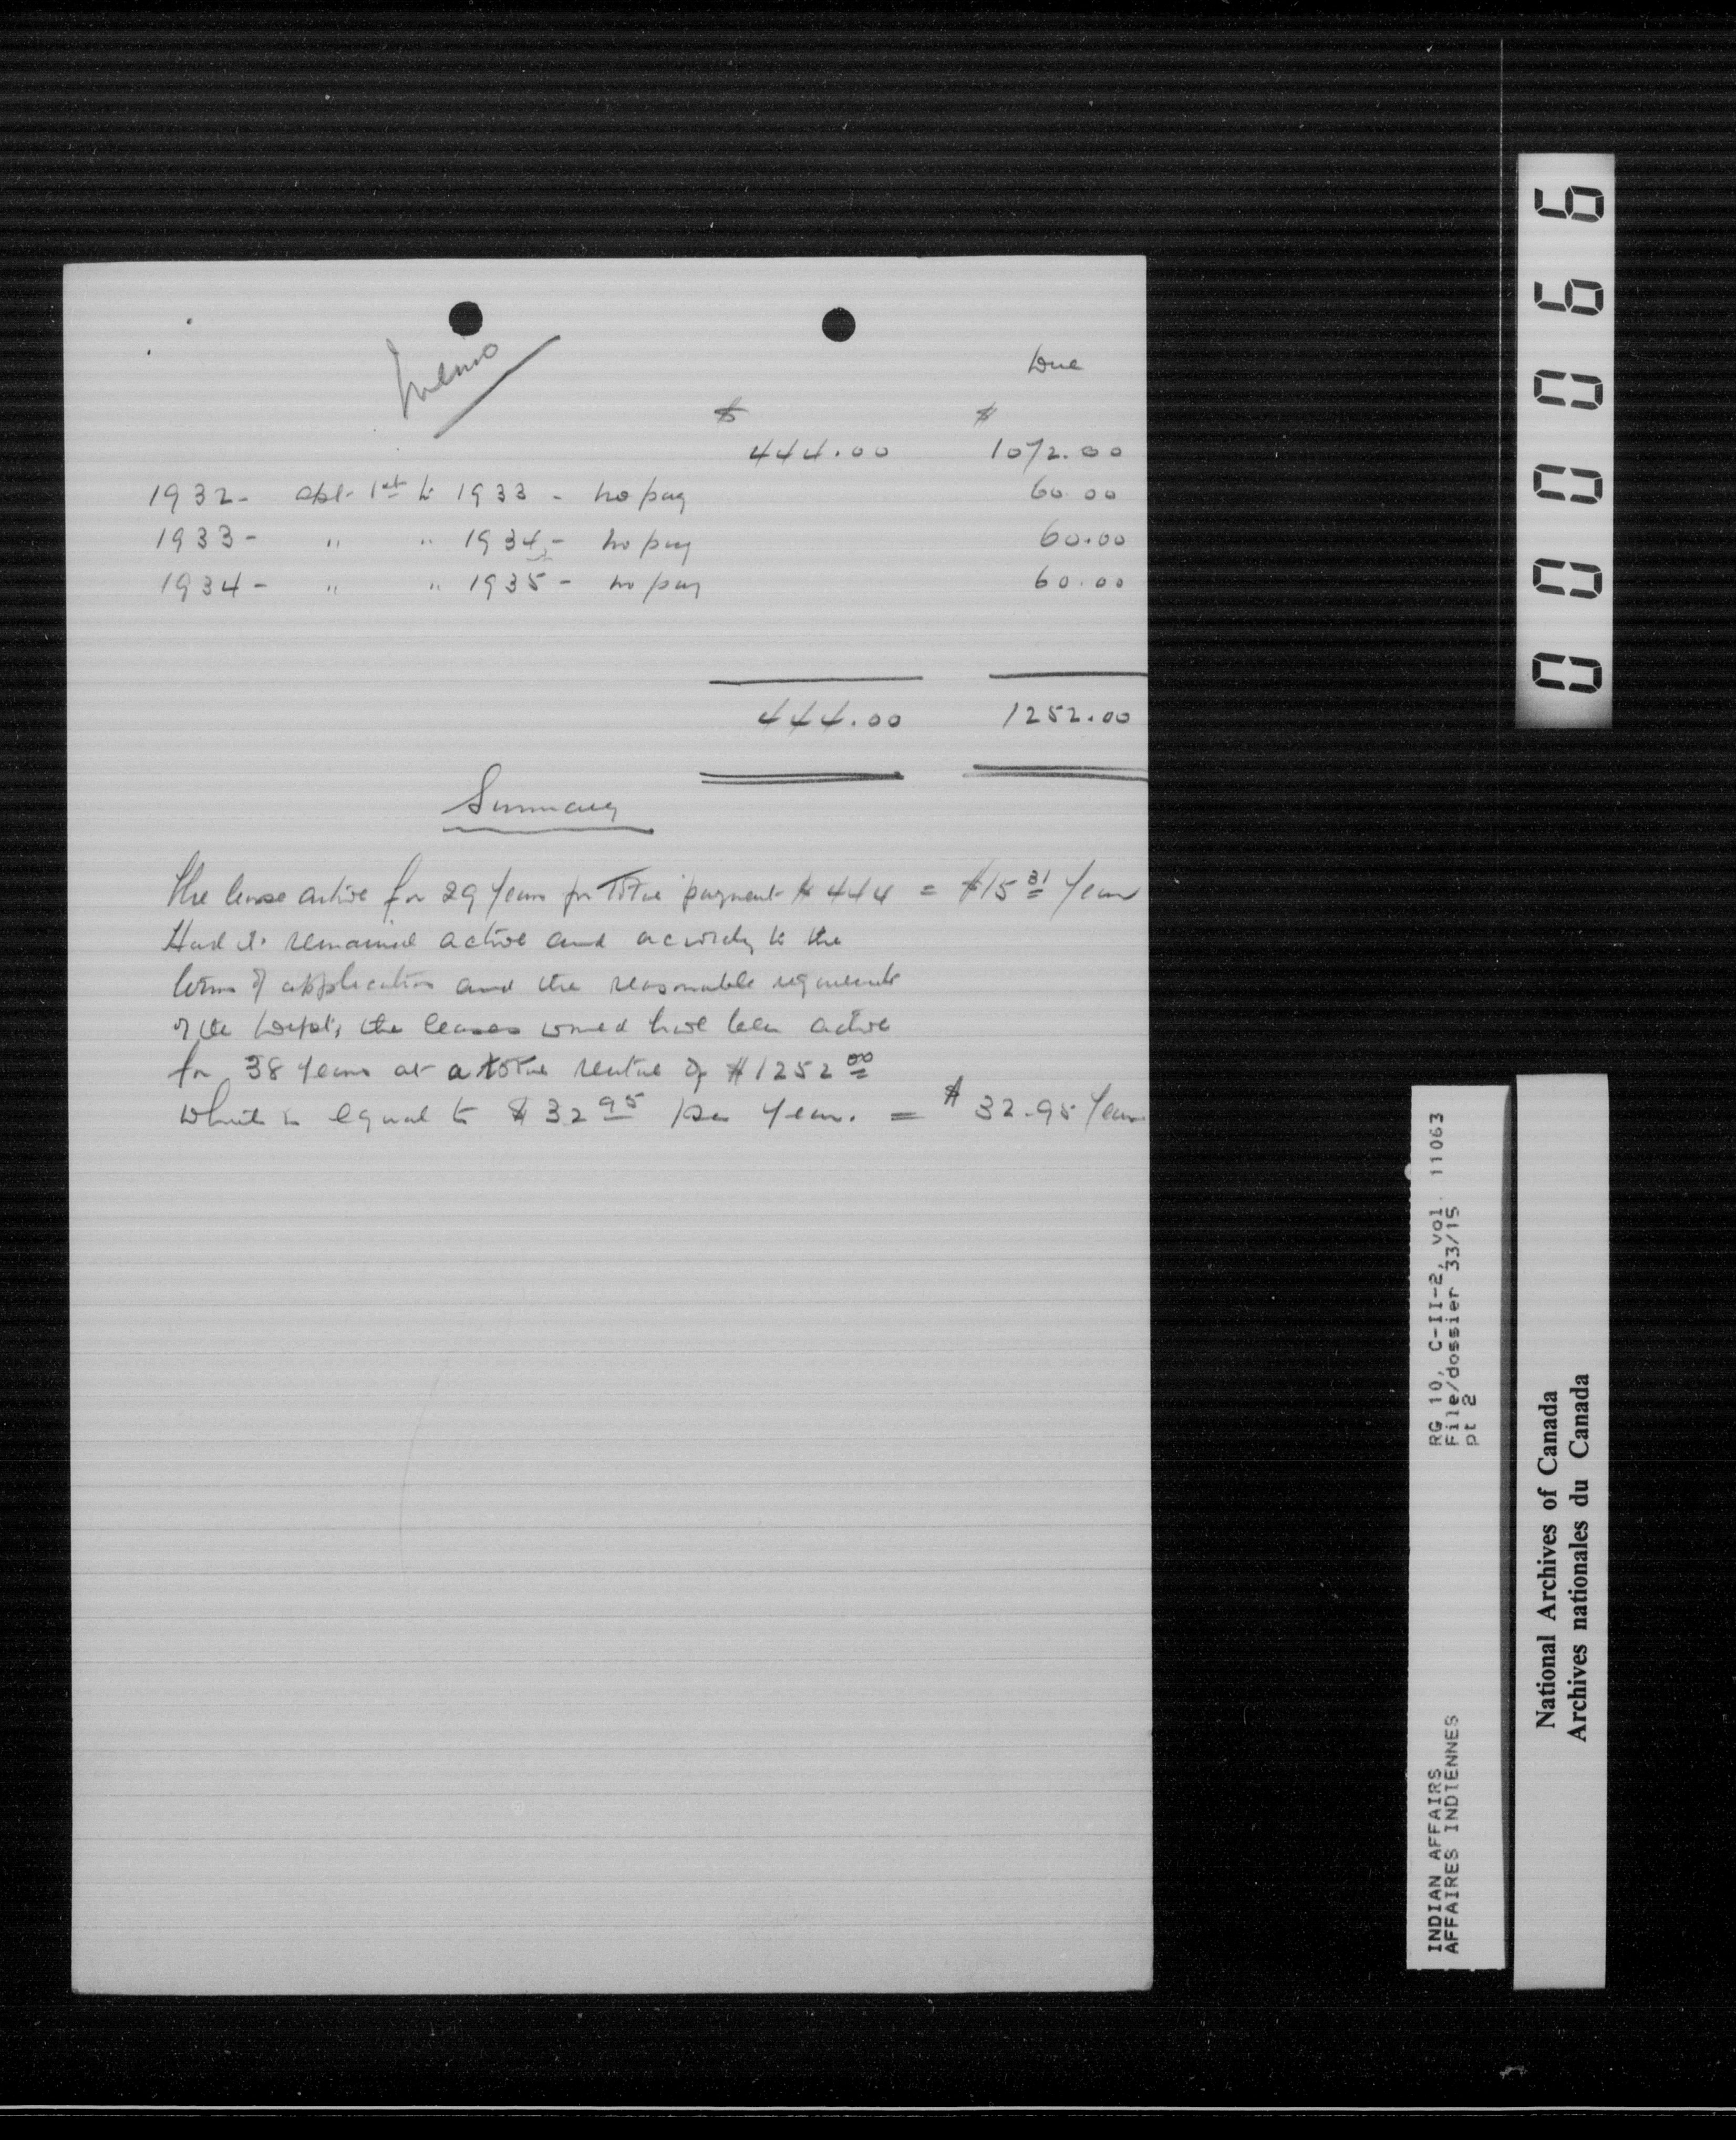 Memo
Due
$ $
444.00 1072.00
1932- Apl- 1st to 1933 - no pay 60.00
1933- " " 1934,- no pay 60.00
1934- " " 1935- no pay 60.00
444.00 1252.00
Summary
The lease active for 29 years for Total payment $ 444 = $15 31 Year
Had it remained active and according to the
terms of application and the reasonable
of the Dept, the leases would have been active
for 38 years at a total rental of $1252 00
which is equal to $32 95 per year. = $ 32.95 Year
000066
RG 10, C-II-2, vol. 11063
File/dossier 33/15
pt 2
INDIAN AFFAIRS
AFFAIRES INDIENNES
National Archives of Canada
Archives nationales du Canada